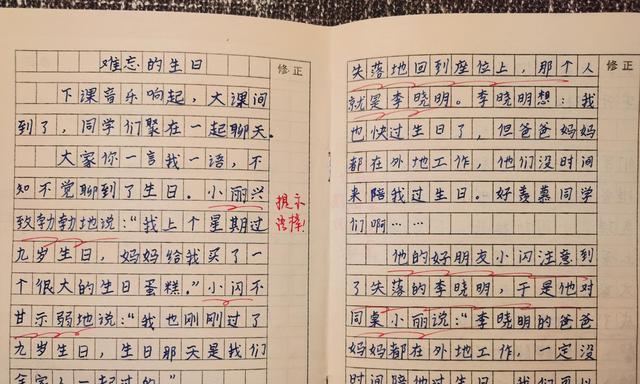 难忘的生日
修正
下课音乐响起，大课间
到了，同学们聚在一起聊天。
大家你一言我一语，不
知不觉聊到了生日。小丽兴
致勃勃地说：“我上个星期过
九岁生日，妈妈给我买了一
个很大的生日蛋糕。”小闪不
甘示弱地说：“我也刚刚过了
九岁生日，生日那天是我们
全家人一起过的。”
提示
语撑!
失落地回到座位上，那个人
修正
就是李晓明。李晓明想：我
也快过生日了，但爸爸妈妈
都在外地工作，他们没时间
来陪我过生日。好羡慕同学
们啊……
他的好朋友小闪注意到
了失落的李晓明，于是他对
同桌小丽说：“李晓明的爸爸
妈妈都在外地工作，一定没
时间陪他过生日，我们可以